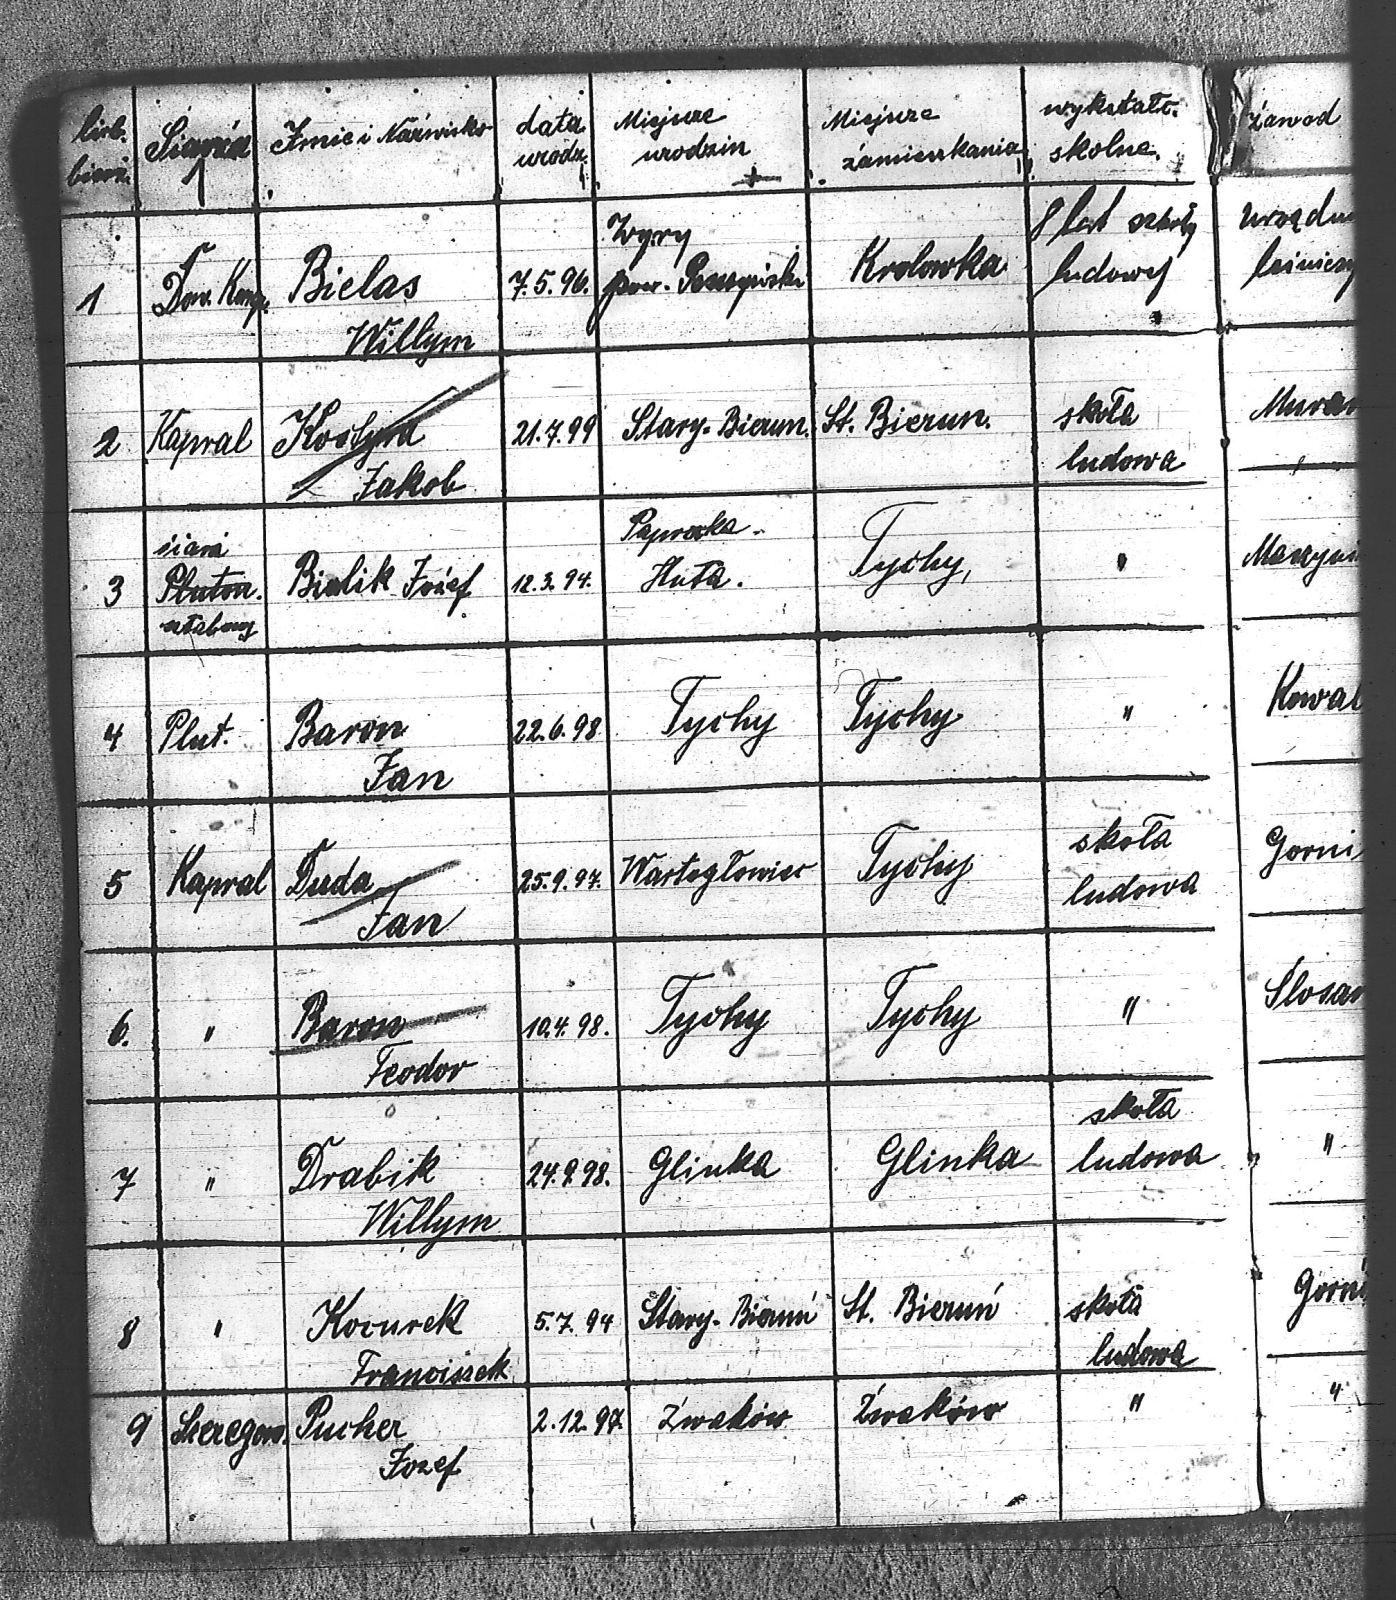 licb. bierz. Szarża Imię i Nazwisko data urodz. Miejsce urodzin Miejsce zamieszkania wykształc. skolne. zawod
1 Dow. Komp. Bielas Willym 7.5.96. Wyry pow. Pszczyński Krolowka 8 lat szkoły ludowej
2 Kapral Kostyra Jakob 21.7.99 Stary-Bierun. St. Bierun. skoła ludowa
3 Pluton. Bialik Józef 12.3.94. Paprocka. Huta. Tychy, "
4 Plut. Baron Jan 22.6.98 Tychy Tychy " Kowal
5 Kapral Duda Jan 25.9.97. Wartogłowiec Tychy skoła ludowa Gorni
6. " Baron Teodor 10.4.98. Tychy Tychy " Slosar
7 " Drabik Willym 24.9.98. Glinka Glinka skoła ludowa "
8 " Kocurek Franciszek 5.7.94 Stary-Bieruń St. Bieruń skoła ludowa Gorni
9 Szeregow. Pucher Jozef 2.12.97. Żwaków Żwaków " "